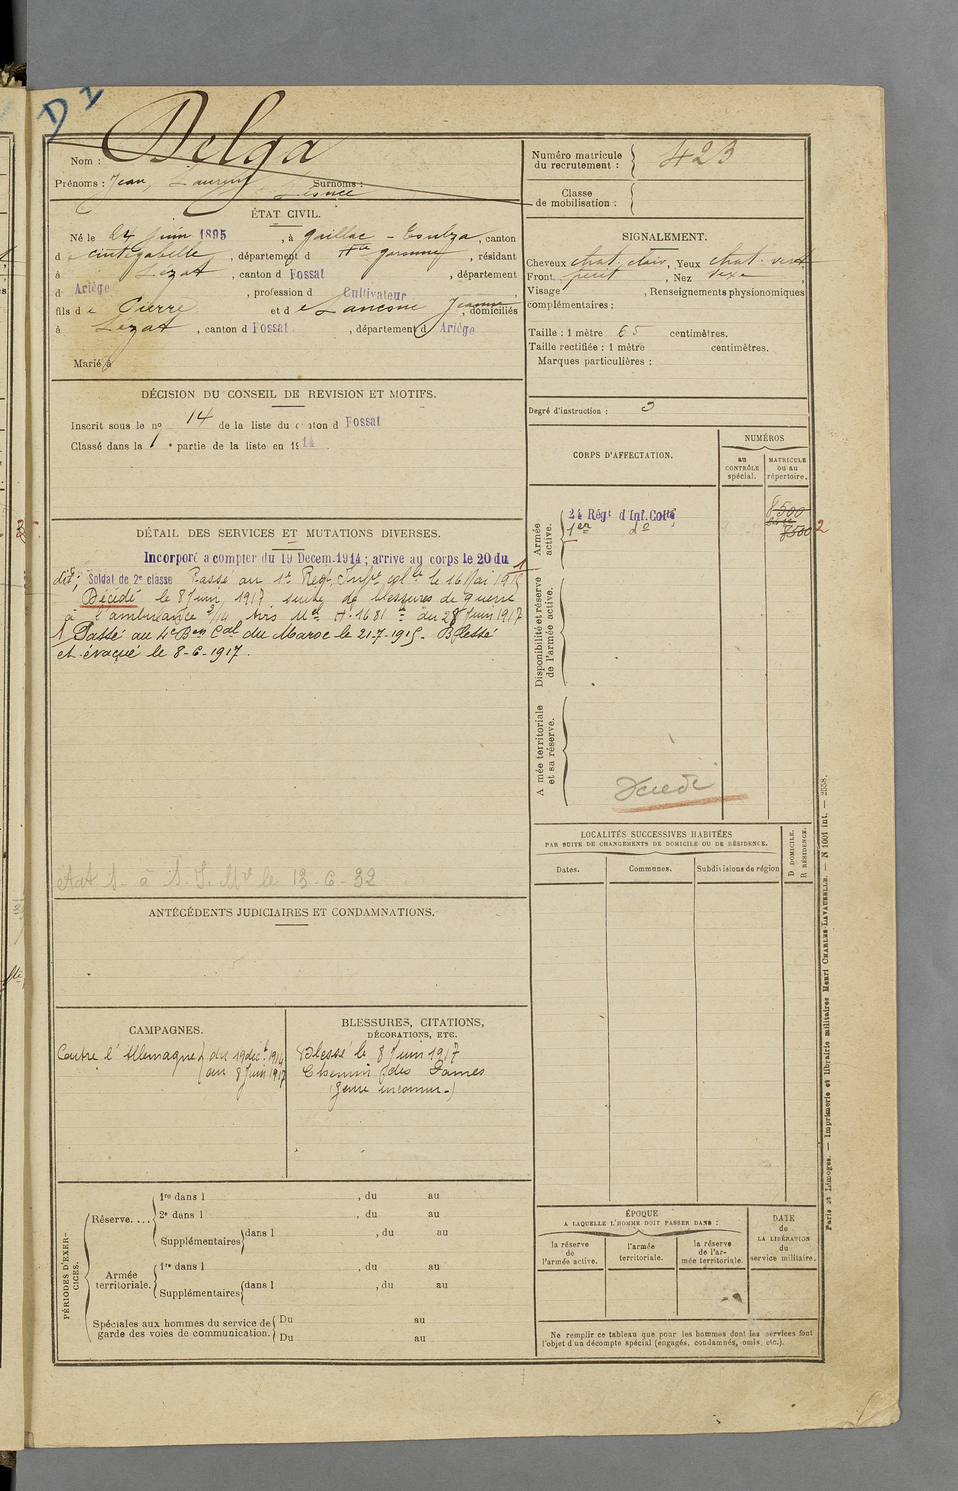 D 1
Nom : Delga
Prénoms : Jean, Laurent Surnoms :
Numéro matricule du recrutement : 423
Classe de mobilisation :
ÉTAT CIVIL.
Né le 24 Juin 1895, à Gaillac-Toulza, canton
d e Cintegabelle, département d Hte Garonne, résidant
à Lézat, canton d Fossat, département
d Ariège, profession d Cultivateur
fils d e Pierre et d e Jeanne, domiciliés
à Lézat, canton d Fossat, département d Ariège
Marié à
SIGNALEMENT.
Cheveux chat. clair, Yeux chat. vert,
Front petit, Nez vexe,
Visage , Renseignements physionomiques
complémentaires :
Taille : 1 mètre 65 centimètres.
Taille rectifiée : 1 mètre centimètres.
Marques particulières :
Degré d'instruction : 3
DÉCISION DU CONSEIL DE REVISION ET MOTIFS.
Inscrit sous le no 14 de la liste du canton d Fossat
Classé dans la 1e partie de la liste en 1914
DÉTAIL DES SERVICES ET MUTATIONS DIVERSES.
Incorporé a compter du 19 Décem. 1914 ; arrivé au corps le 20 du
dit; Soldat de 2e classe Passé au 1er Régt Infie Colle le 16 Mai 1915 1
Décédé le 8 Juin 1917 suite de blessures de guerre
à l'ambulance 3/14 Avis Mel A 1681 du 28 Juin 1917
1 Passé au 4e Bon Cal du Maroc le 21-7-1915. Blessé
et évacué le 8-6-1917.
CORPS D'AFFECTATION.
NUMÉROS
au CONTRÔLE spécial.
MATRICULE ou au répertoire.
Armée active.
24 Régt d'Inf. Colle 8500
1er do 8500 2
Disponibilité et réserve de l'armée active.
Armée territoriale et sa réserve.
Décédé
LOCALITÉS SUCCESSIVES HABITÉES
PAR SUITE DE CHANGEMENTS DE DOMICILE OU DE RÉSIDENCE.
Dates. Communes. Subdivisions de région
D DOMICILE.
R RÉSIDENCE.
le 13-6-32
ANTÉCÉDENTS JUDICIAIRES ET CONDAMNATIONS.
CAMPAGNES.
Contre l'Allemagne du 19 déc. 1914
au 8 Juin 1917
BLESSURES, CITATIONS,
DÉCORATIONS, ETC.
Blessé le 8 Juin 1917
Chemin des Dames
(Genre inconnu.)
PÉRIODES D'EXERCICES.
Réserve....
1re dans l , du au
2e dans l , du au
Supplémentaires dans l , du au
Armée territoriale.
1re dans l , du au
Supplémentaires dans l , du au
Spéciales aux hommes du service de garde des voies de communication.
Du au
Du au
ÉPOQUE
A LAQUELLE L'HOMME DOIT PASSER DANS :
la réserve de l'armée active.
l'armée territoriale.
la réserve de l'armée territoriale.
DATE de LA LIBÉRATION du service militaire.
Ne remplir ce tableau que pour les hommes dont les services font
l'objet d'un décompte spécial (engagés, condamnés, omis, etc.).
Paris et Limoges. — Imprimerie et librairie militaires Henri CHARLES-LAVAUZELLE. — N 1001 int. — 2558.